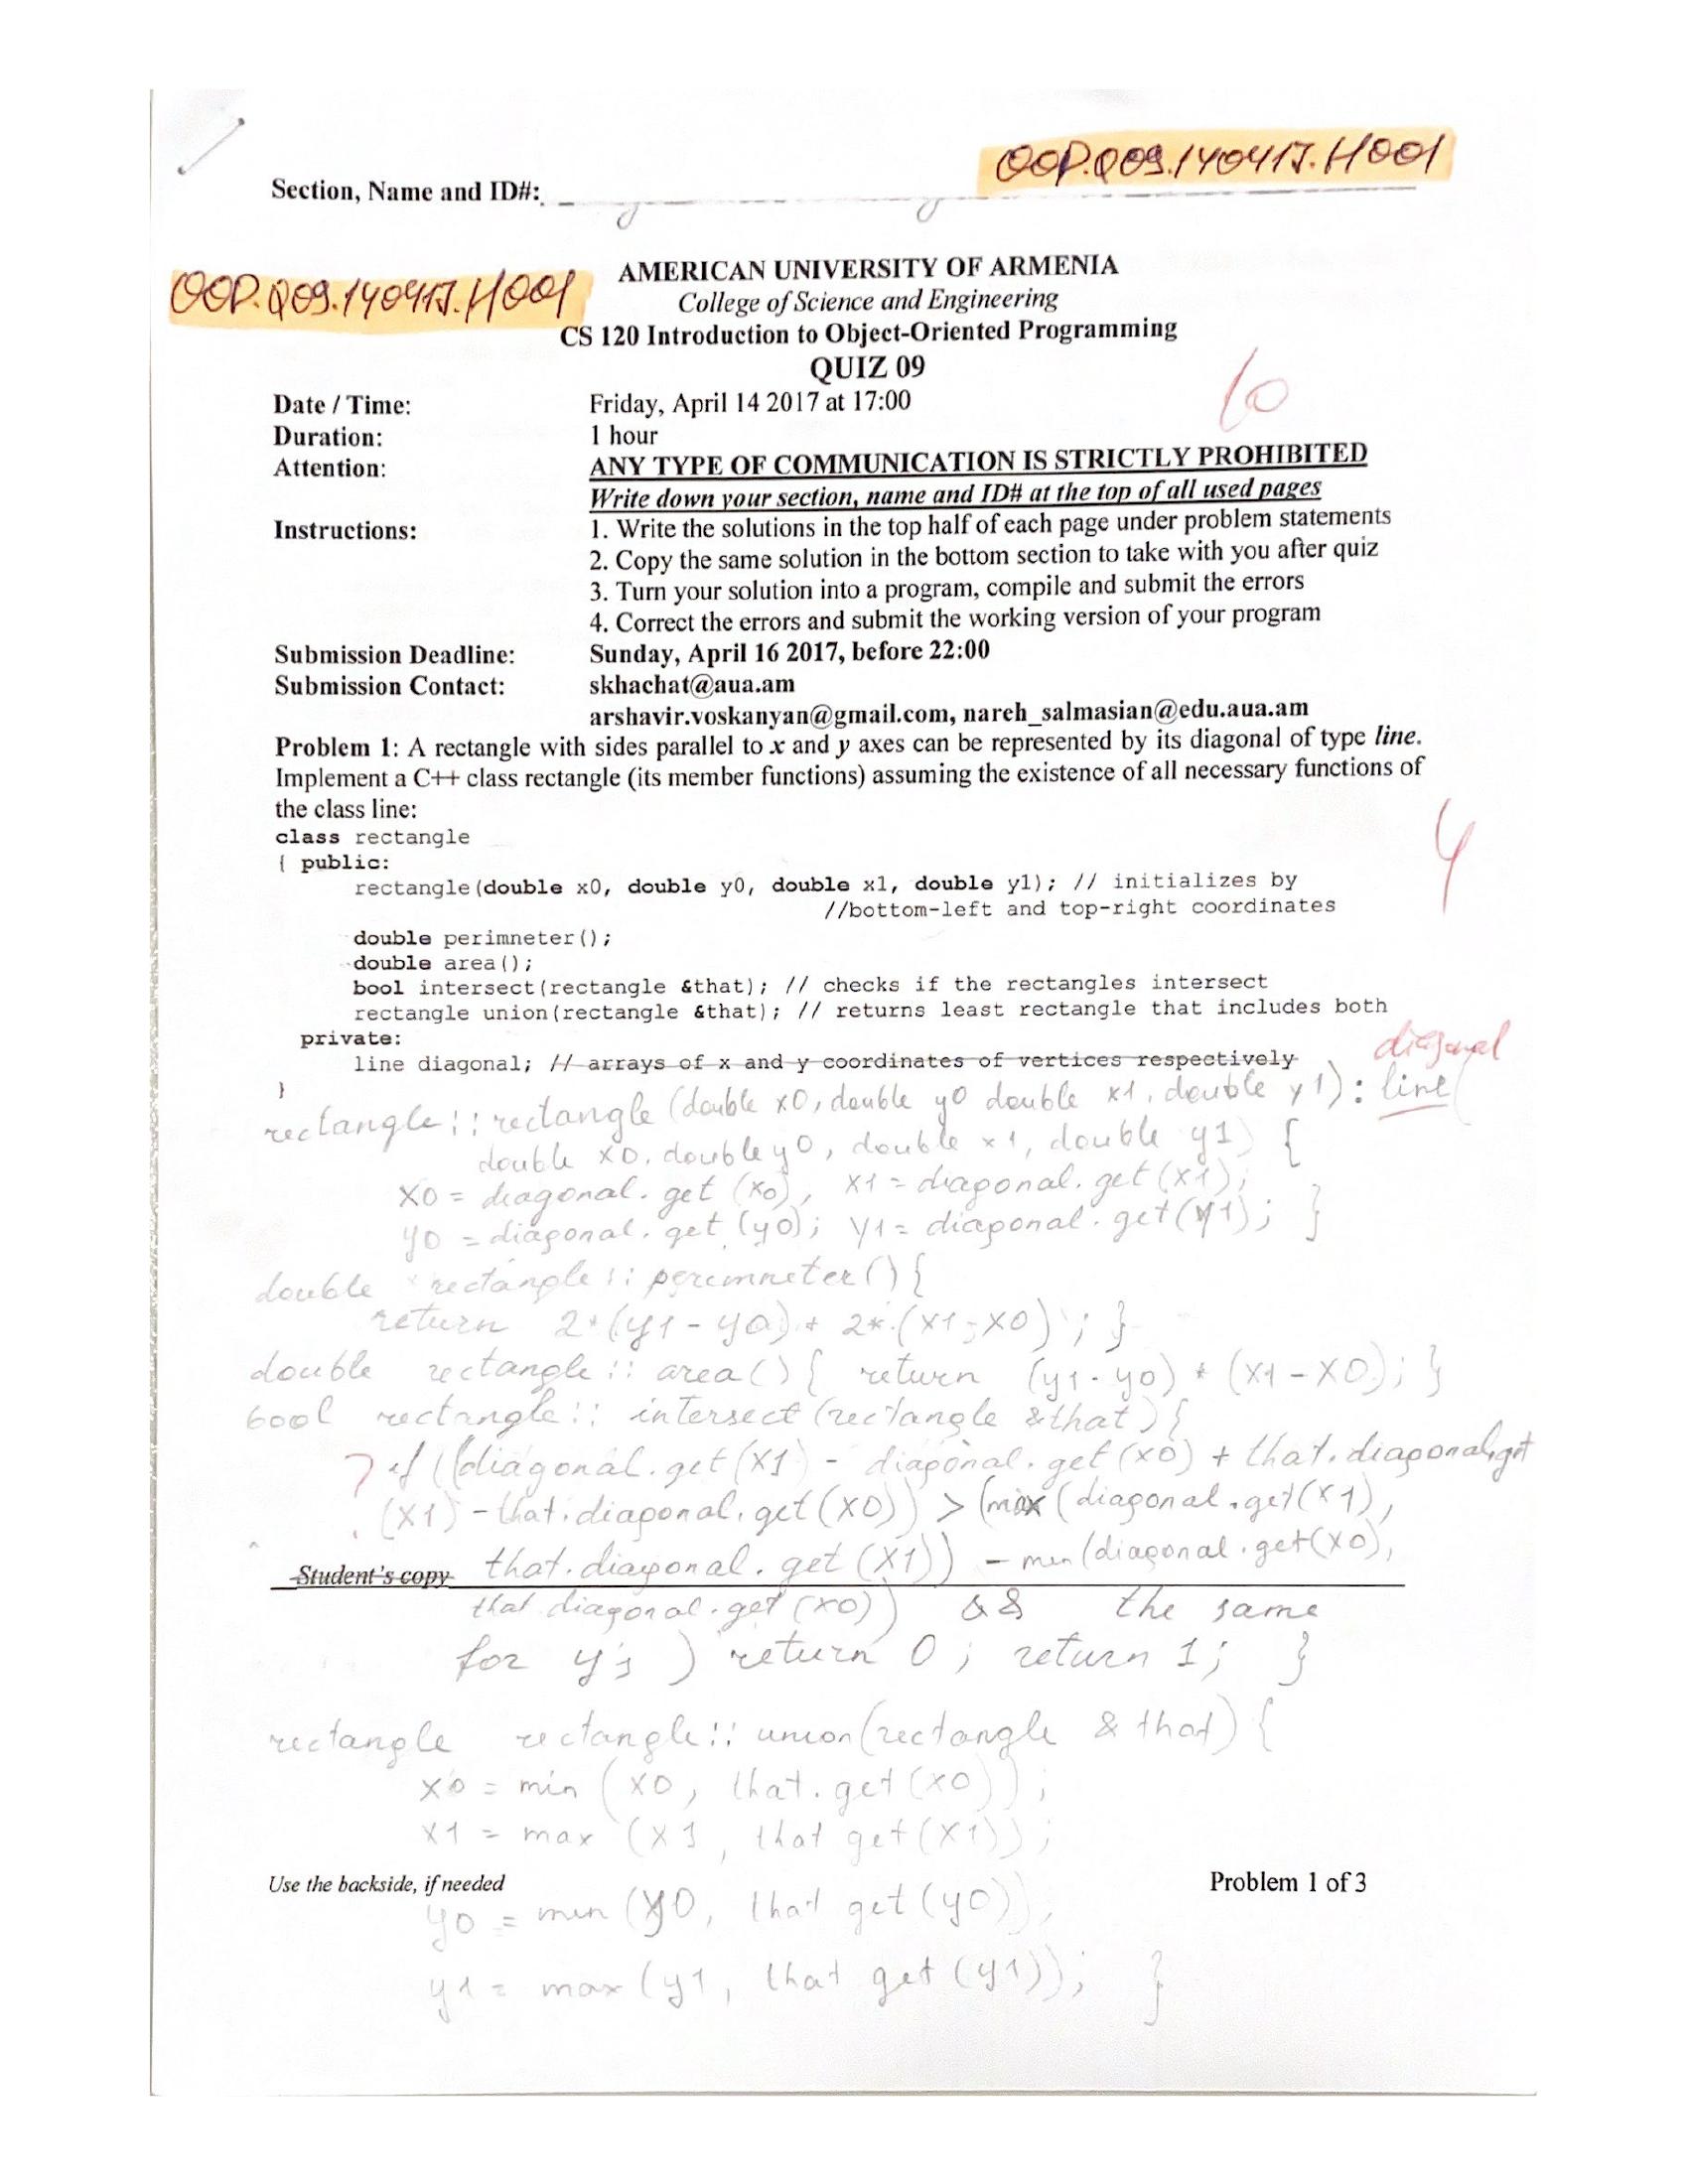 OOP.Q09.140417.H001
Section, Name and ID#:
OOP.Q09.140417.H001
AMERICAN UNIVERSITY OF ARMENIA
College of Science and Engineering
CS 120 Introduction to Object-Oriented Programming
QUIZ 09
Date / Time: Friday, April 14 2017 at 17:00
Duration: 1 hour
Attention: ANY TYPE OF COMMUNICATION IS STRICTLY PROHIBITED
Write down your section, name and ID# at the top of all used pages
Instructions: 1. Write the solutions in the top half of each page under problem statements
2. Copy the same solution in the bottom section to take with you after quiz
3. Turn your solution into a program, compile and submit the errors
4. Correct the errors and submit the working version of your program
Submission Deadline: Sunday, April 16 2017, before 22:00
Submission Contact: skhachat@aua.am
arshavir.voskanyan@gmail.com, nareh_salmasian@edu.aua.am
Problem 1: A rectangle with sides parallel to x and y axes can be represented by its diagonal of type line.
Implement a C++ class rectangle (its member functions) assuming the existence of all necessary functions of
the class line:
4
class rectangle
{ public:
rectangle(double x0, double y0, double x1, double y1); // initializes by
//bottom-left and top-right coordinates
double perimneter();
double area();
bool intersect(rectangle &that); // checks if the rectangles intersect
rectangle union(rectangle &that); // returns least rectangle that includes both
private:
line diagonal; // arrays of x and y coordinates of vertices respectively
}
diagonal
rectangle::rectangle (double x0, double y0 double x1, double y1) : line(
double x0, double y0, double x1, double y1) {
x0 = diagonal. get (x0), x1 = diagonal. get (x1);
y0 = diagonal. get (y0); y1 = diagonal. get (y1); }
double rectangle :: perimneter() {
return 2*(y1 - y0) + 2*(x1 - x0) ; }
double rectangle :: area() { return (y1 - y0) * (x1 - x0); }
bool rectangle :: intersect (rectangle &that) {
? if ((diagonal. get (x1) - diagonal. get (x0) + that. diagonal.get
(x1) - that. diagonal. get (x0)) > (max (diagonal. get(x1),
that. diagonal. get (x1)) - min (diagonal. get(x0),
Student's copy
that diagonal. get (x0)) && the same
for y's ) return 0; return 1; }
rectangle rectangle :: union (rectangle & that) {
x0 = min (x0, that. get (x0));
x1 = max (x1, that get (x1));
Use the backside, if needed Problem 1 of 3
y0 = min (y0, that get (y0)),
y1 = max (y1, that get (y1)); }